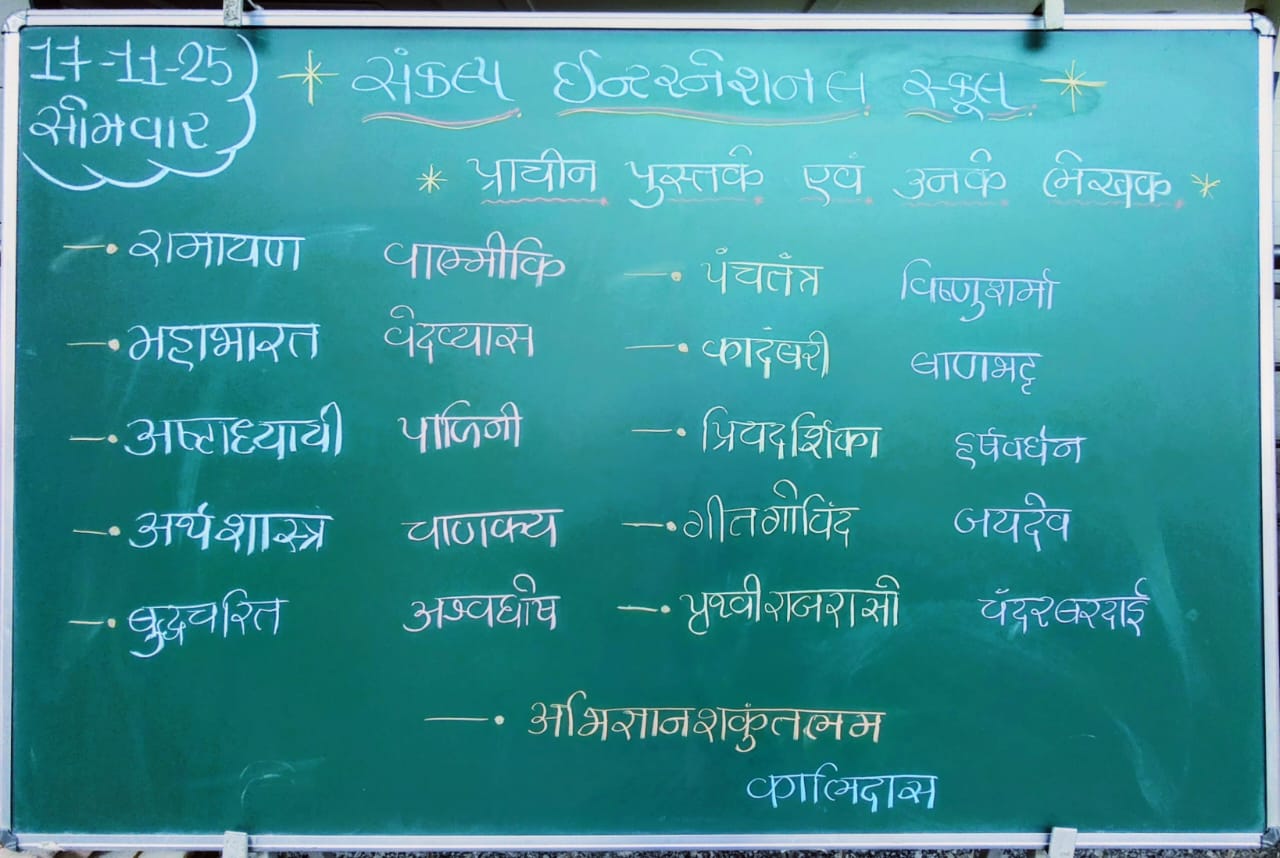 17-11-25
सोमवार
संकल्प ईन्टरनेशनल स्कूल
प्राचीन पुस्तके एवं उनके लेखक
रामायण वाल्मीकि
महाभारत वेदव्यास
अष्टाध्यायी पाणिनी
अर्थशास्त्र चाणक्य
बुद्धचरित अश्वघोष
पंचतंत्र विष्णुशर्मा
कादंबरी बाणभट्ट
प्रियदर्शिका हर्षवर्धन
गीतगोविंद जयदेव
पृथ्वीराजरासो चंदरबरदाई
अभिज्ञानशकुंतलम
कालिदास